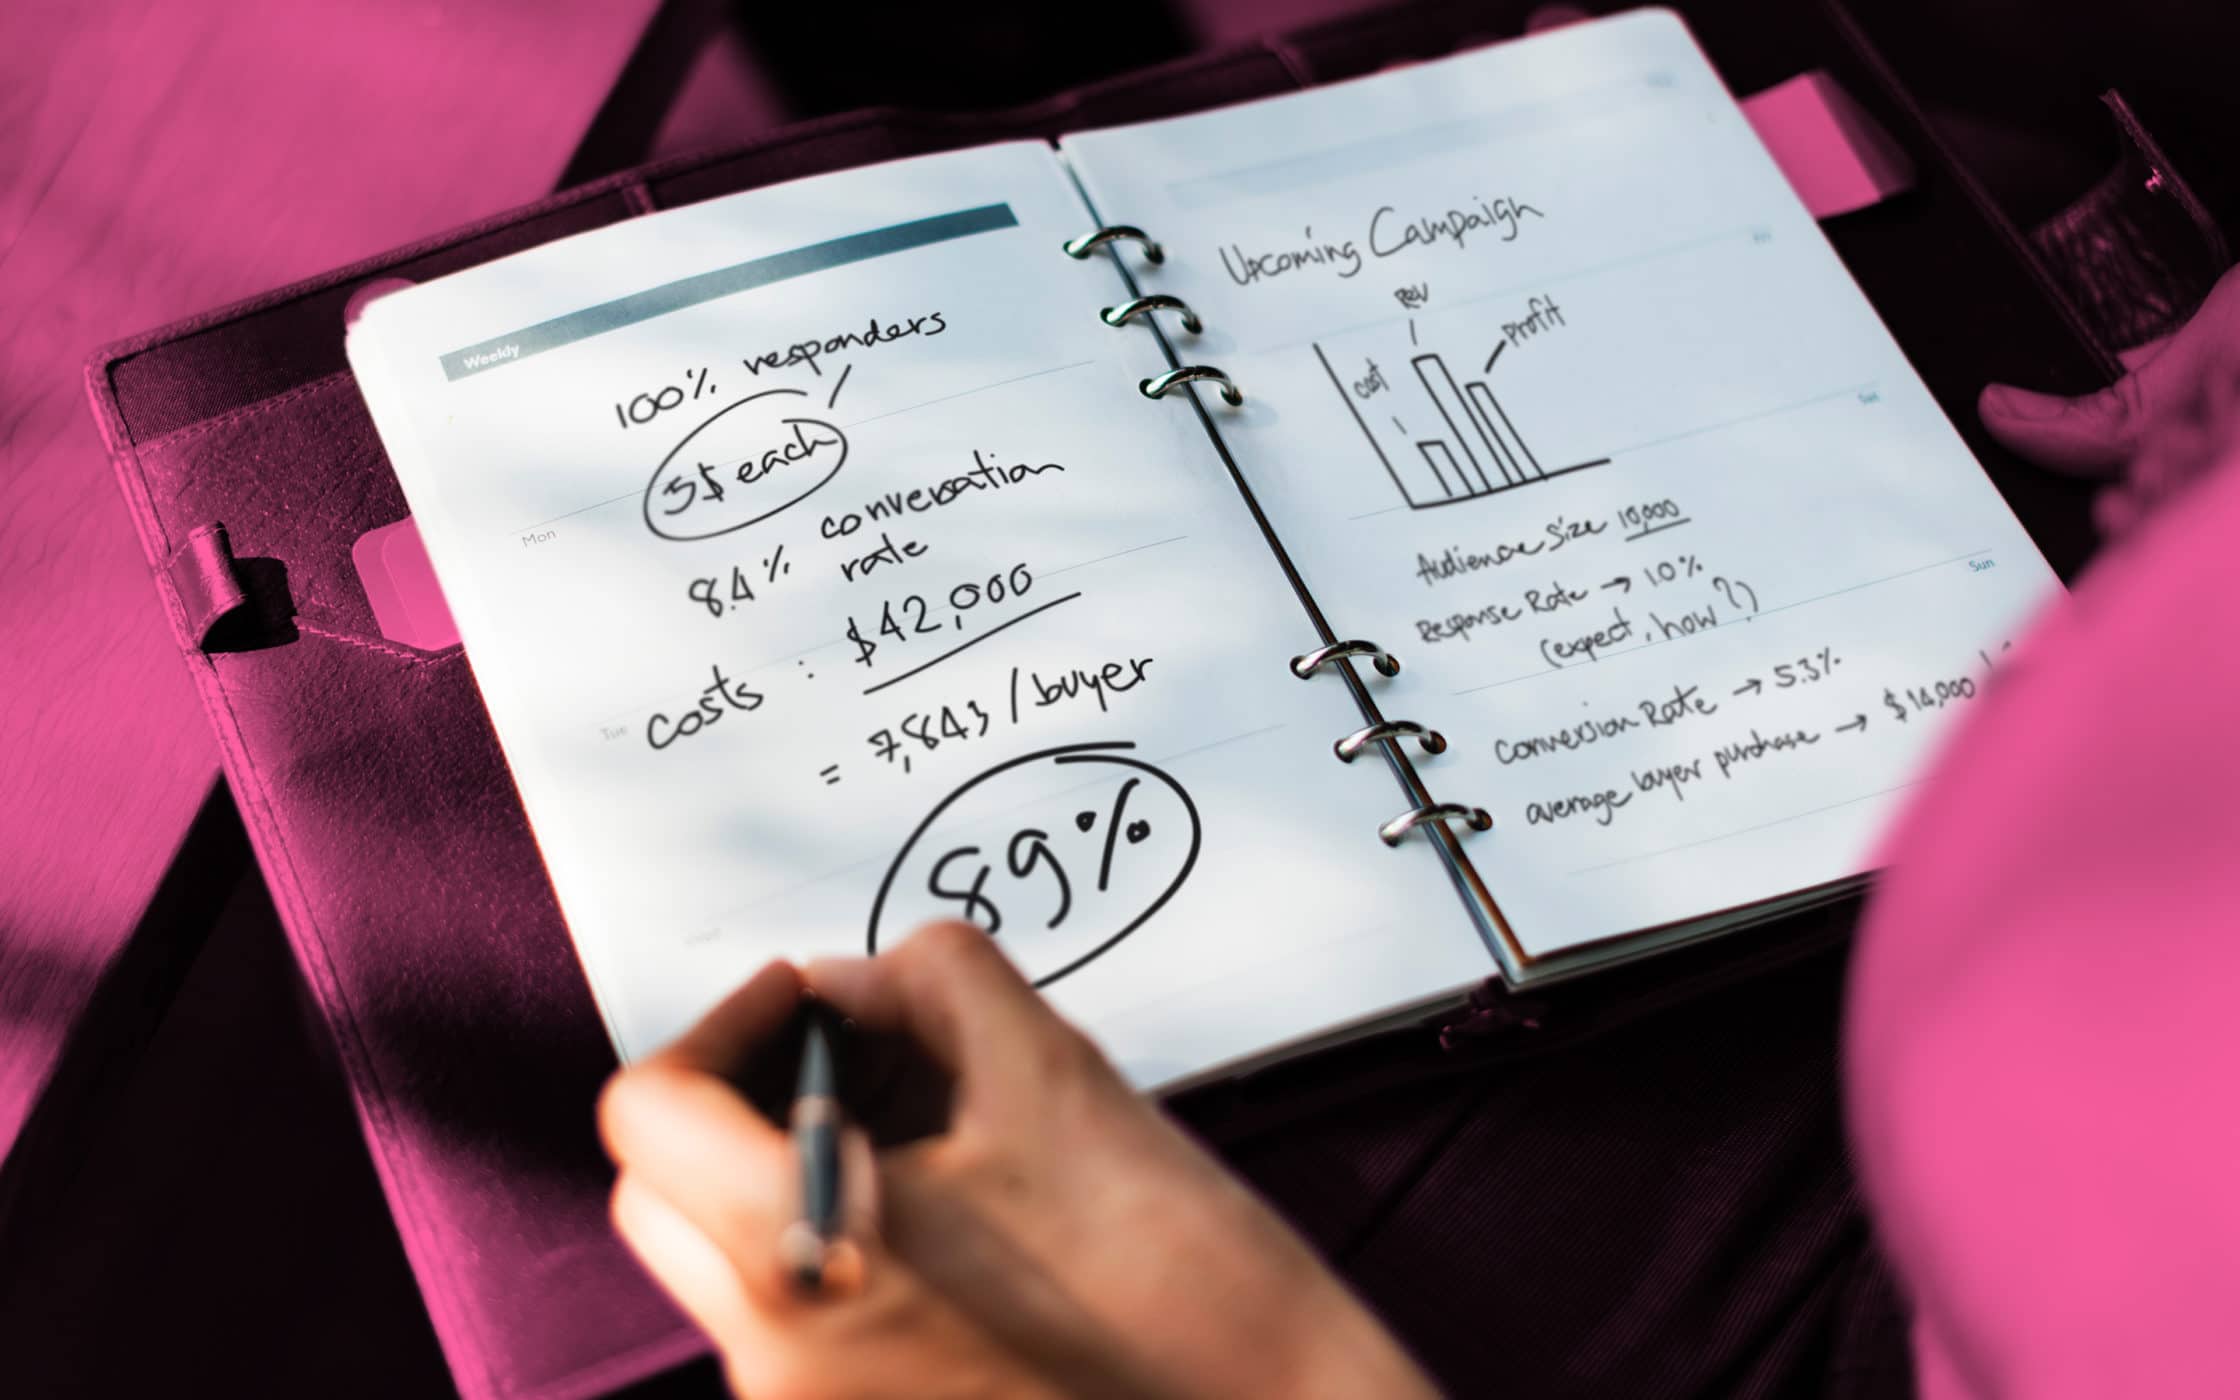 Weekly
100% responders
5$ each
8.4% conversation
rate
costs : $42,000
= 7,843 / buyer
89%
Mon
Tue
Upcoming Campaign
Rev
cost
Profit
Audience Size 10,000
Response Rate → 1.0%
(expect, how?)
Conversion Rate → 5.3%
average buyer purchase → $14,000
Fri
Sat
Sun